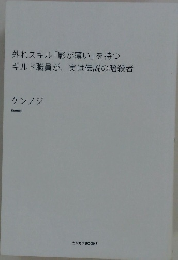 外れスキル「影が薄い」を持つ
ギルド職員が、実は伝説の暗殺者
ケンノジ